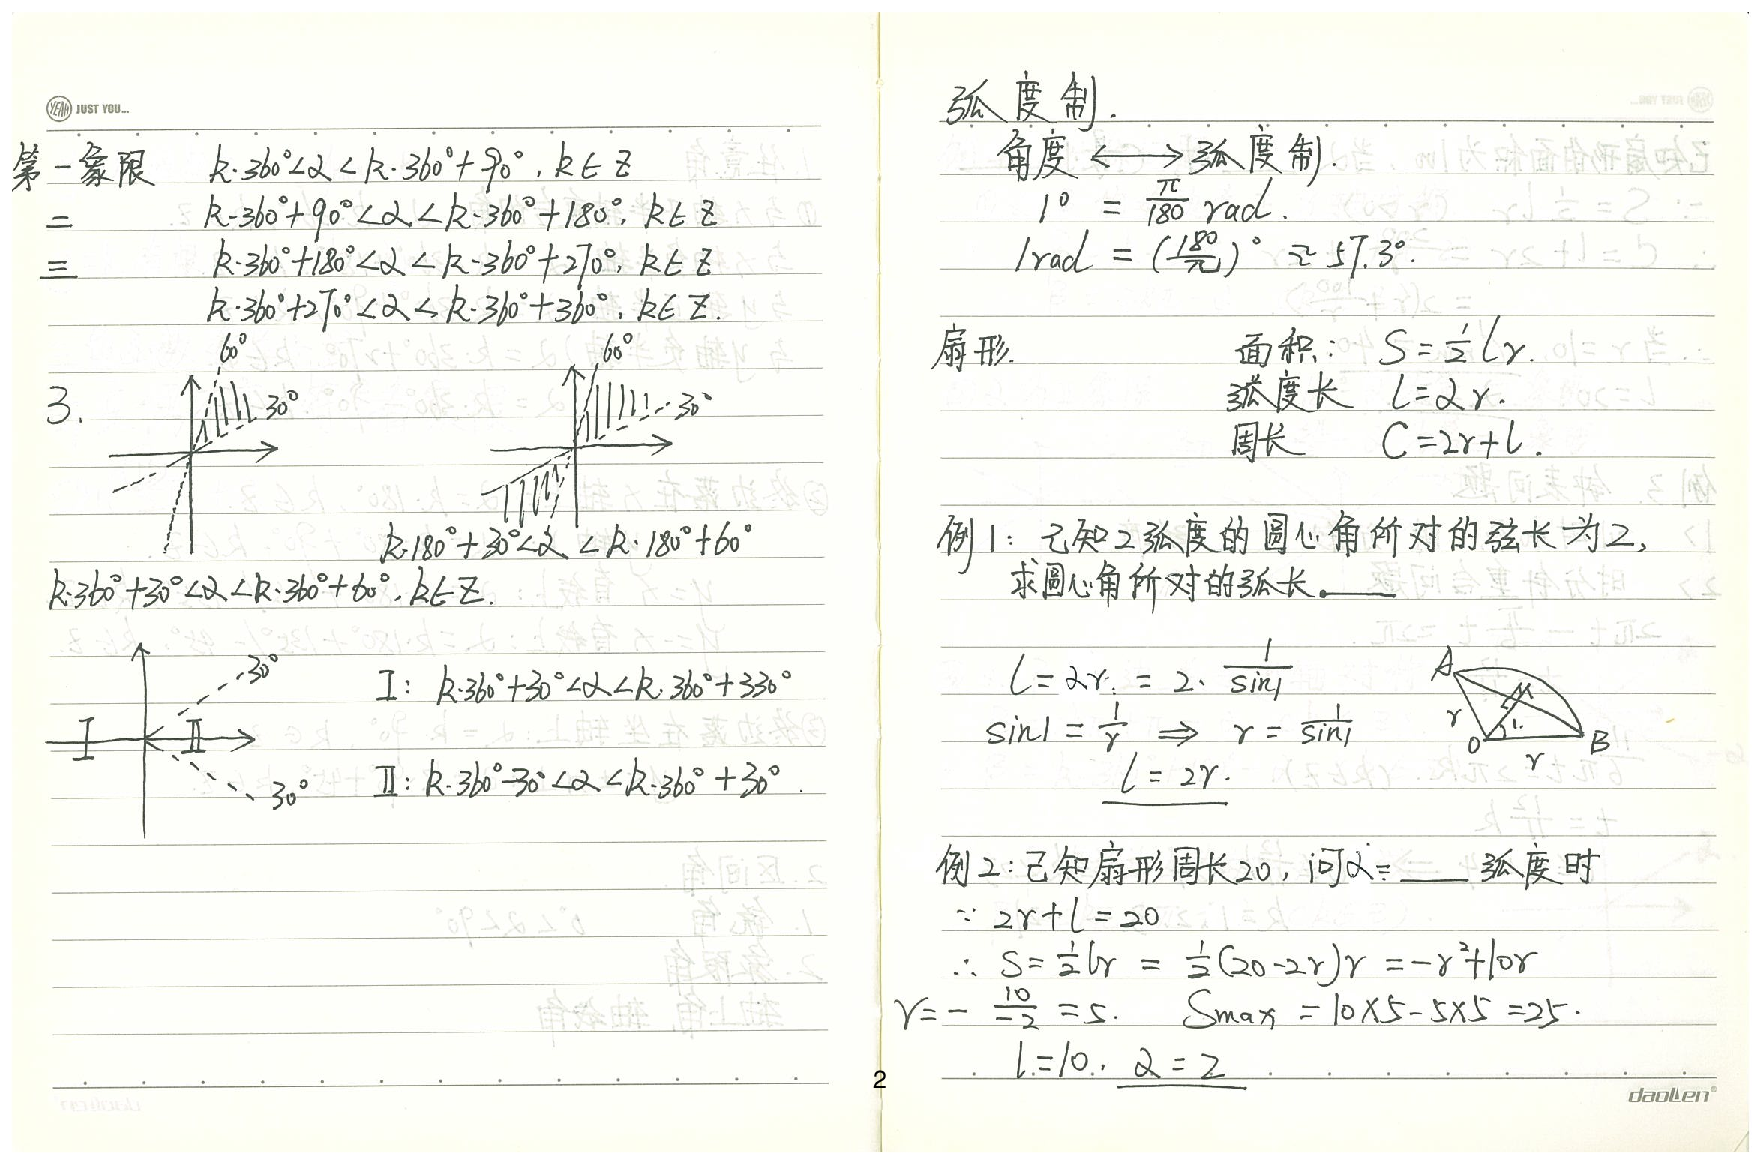 YEAH JUST YOU...
第一象限 k·360°<α<k·360°+90°, k∈Z
二 k·360°+90°<α<k·360°+180°, k∈Z
三 k·360°+180°<α<k·360°+270°, k∈Z
k·360°+270°<α<k·360°+360°, k∈Z.
3.
60° 30°
60° 30°
k·180°+30°<α<k·180°+60°
k·360°+30°<α<k·360°+60°, k∈Z.
30°
I: k·360°+30°<α<k·360°+330°
I II
II: k·360°-30°<α<k·360°+30°.
30°
弧度制.
角度 ⟷ 弧度制.
1° = π/180 rad.
1rad = (180/π)° ≈ 57.3°.
扇形. 面积: S=½lr.
弧度长 l=αr.
周长 C=2r+l.
例1: 已知2弧度的圆心角所对的弦长为2,
求圆心角所对的弧长.____
l=αr. = 2·1/sin1
sin1 = 1/r ⇒ r = 1/sin1
l=2r.
A
r
O 1 B
r
例2: 已知扇形周长20, 问α=____弧度时
∵ 2r+l=20
∴ S=½lr = ½(20-2r)r = -r²+10r
r=- 10/-2 =5. Smax = 10×5-5×5=25.
l=10. α=2
2
daollen®